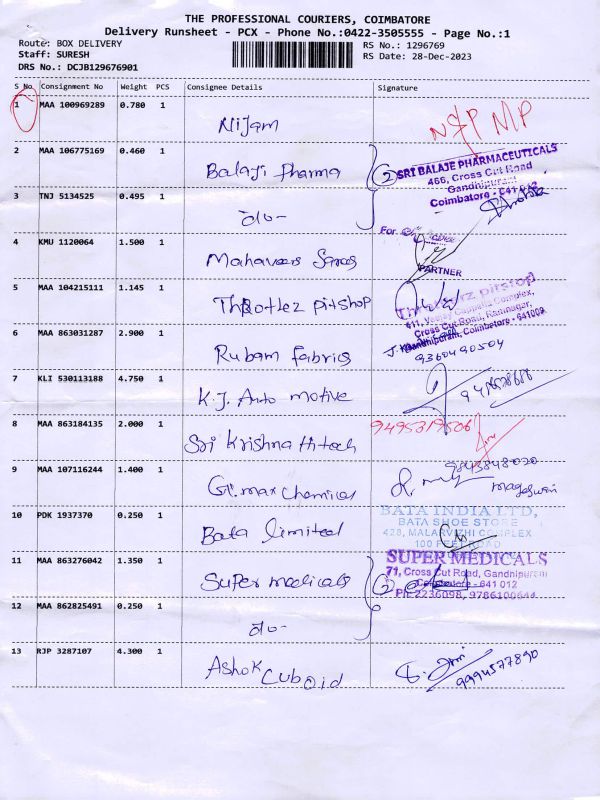 THE PROFESSIONAL COURIERS, COIMBATORE
Delivery Runsheet - PCX - Phone No.:0422-3505555 - Page No.:1
Route: BOX DELIVERY
Staff: SURESH
DRS No.: DCJB129676901
RS No.: 1296769
RS Date: 28-Dec-2023
S No. Consignment No Weight PCS Consignee Details Signature
1 MAA 100969289 0.780 1 Nijam
2 MAA 106775169 0.460 1 Balaji Pharma 2 SRI BALAJE PHARMACEUTICALS
466, Cross Cut Road
Gandhipuram
Coimbatore - 641 012
3 TNJ 5134525 0.495 1 do-
4 KMU 1120064 1.500 1 Mahaveers Sarees For
PARTNER
5 MAA 104215111 1.145 1 Throttlez Pitshop
Cross Cut Road, Ramnagar,
Gandhipuram, Coimbatore - 641009
6 MAA 863031287 2.900 1 Rubam Fabrics 9360490504
7 KLI 530113188 4.750 1 K.J. Auto motive
8 MAA 863184135 2.000 1 Sri Krishna Hitech
9 MAA 107116244 1.400 1 G.max Chemical 9843848020
10 PDK 1937370 0.250 1 Bata limited BATA INDIA LTD,
BATA SHOE STORE
428, MALARVIZHI COMPLEX
100 FEET ROAD
11 MAA 863276042 1.350 1 Super medicals 2 SUPER MEDICALS
71, Cross Cut Road, Gandhipuram
Coimbatore - 641 012
PH: 2236098, 9786100644
12 MAA 862825491 0.250 1 do-
13 RJP 3287107 4.300 1 Ashok Cuboid 9994577890